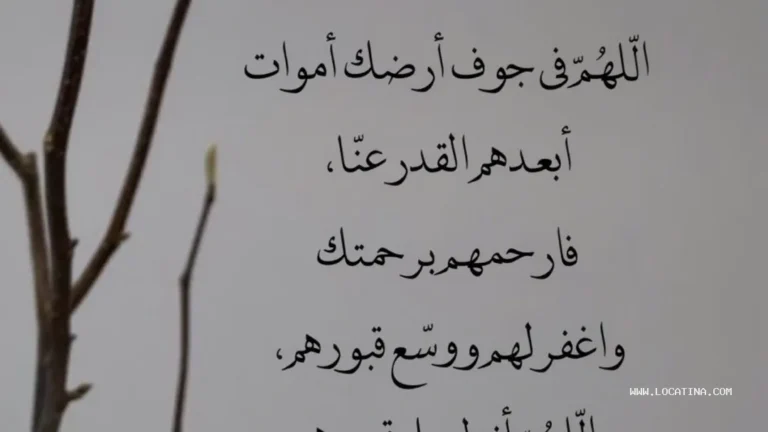 الّلهُمّ في جوف أرضك أموات
أبعدهم القدر عنّا،
فارحمهم برحمتك
واغفر لهم ووسّع قبورهم،
WWW.LOCATINA.COM